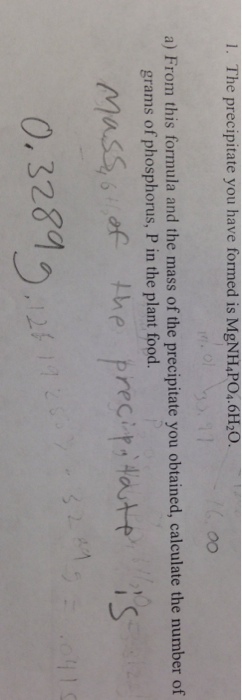 1. The precipitate you have formed is MgNH₄PO₄.6H₂O.
16.00
a) From this formula and the mass of the precipitate you obtained, calculate the number of
grams of phosphorus, P in the plant food.
Mass of the precipitate is
0.3289g